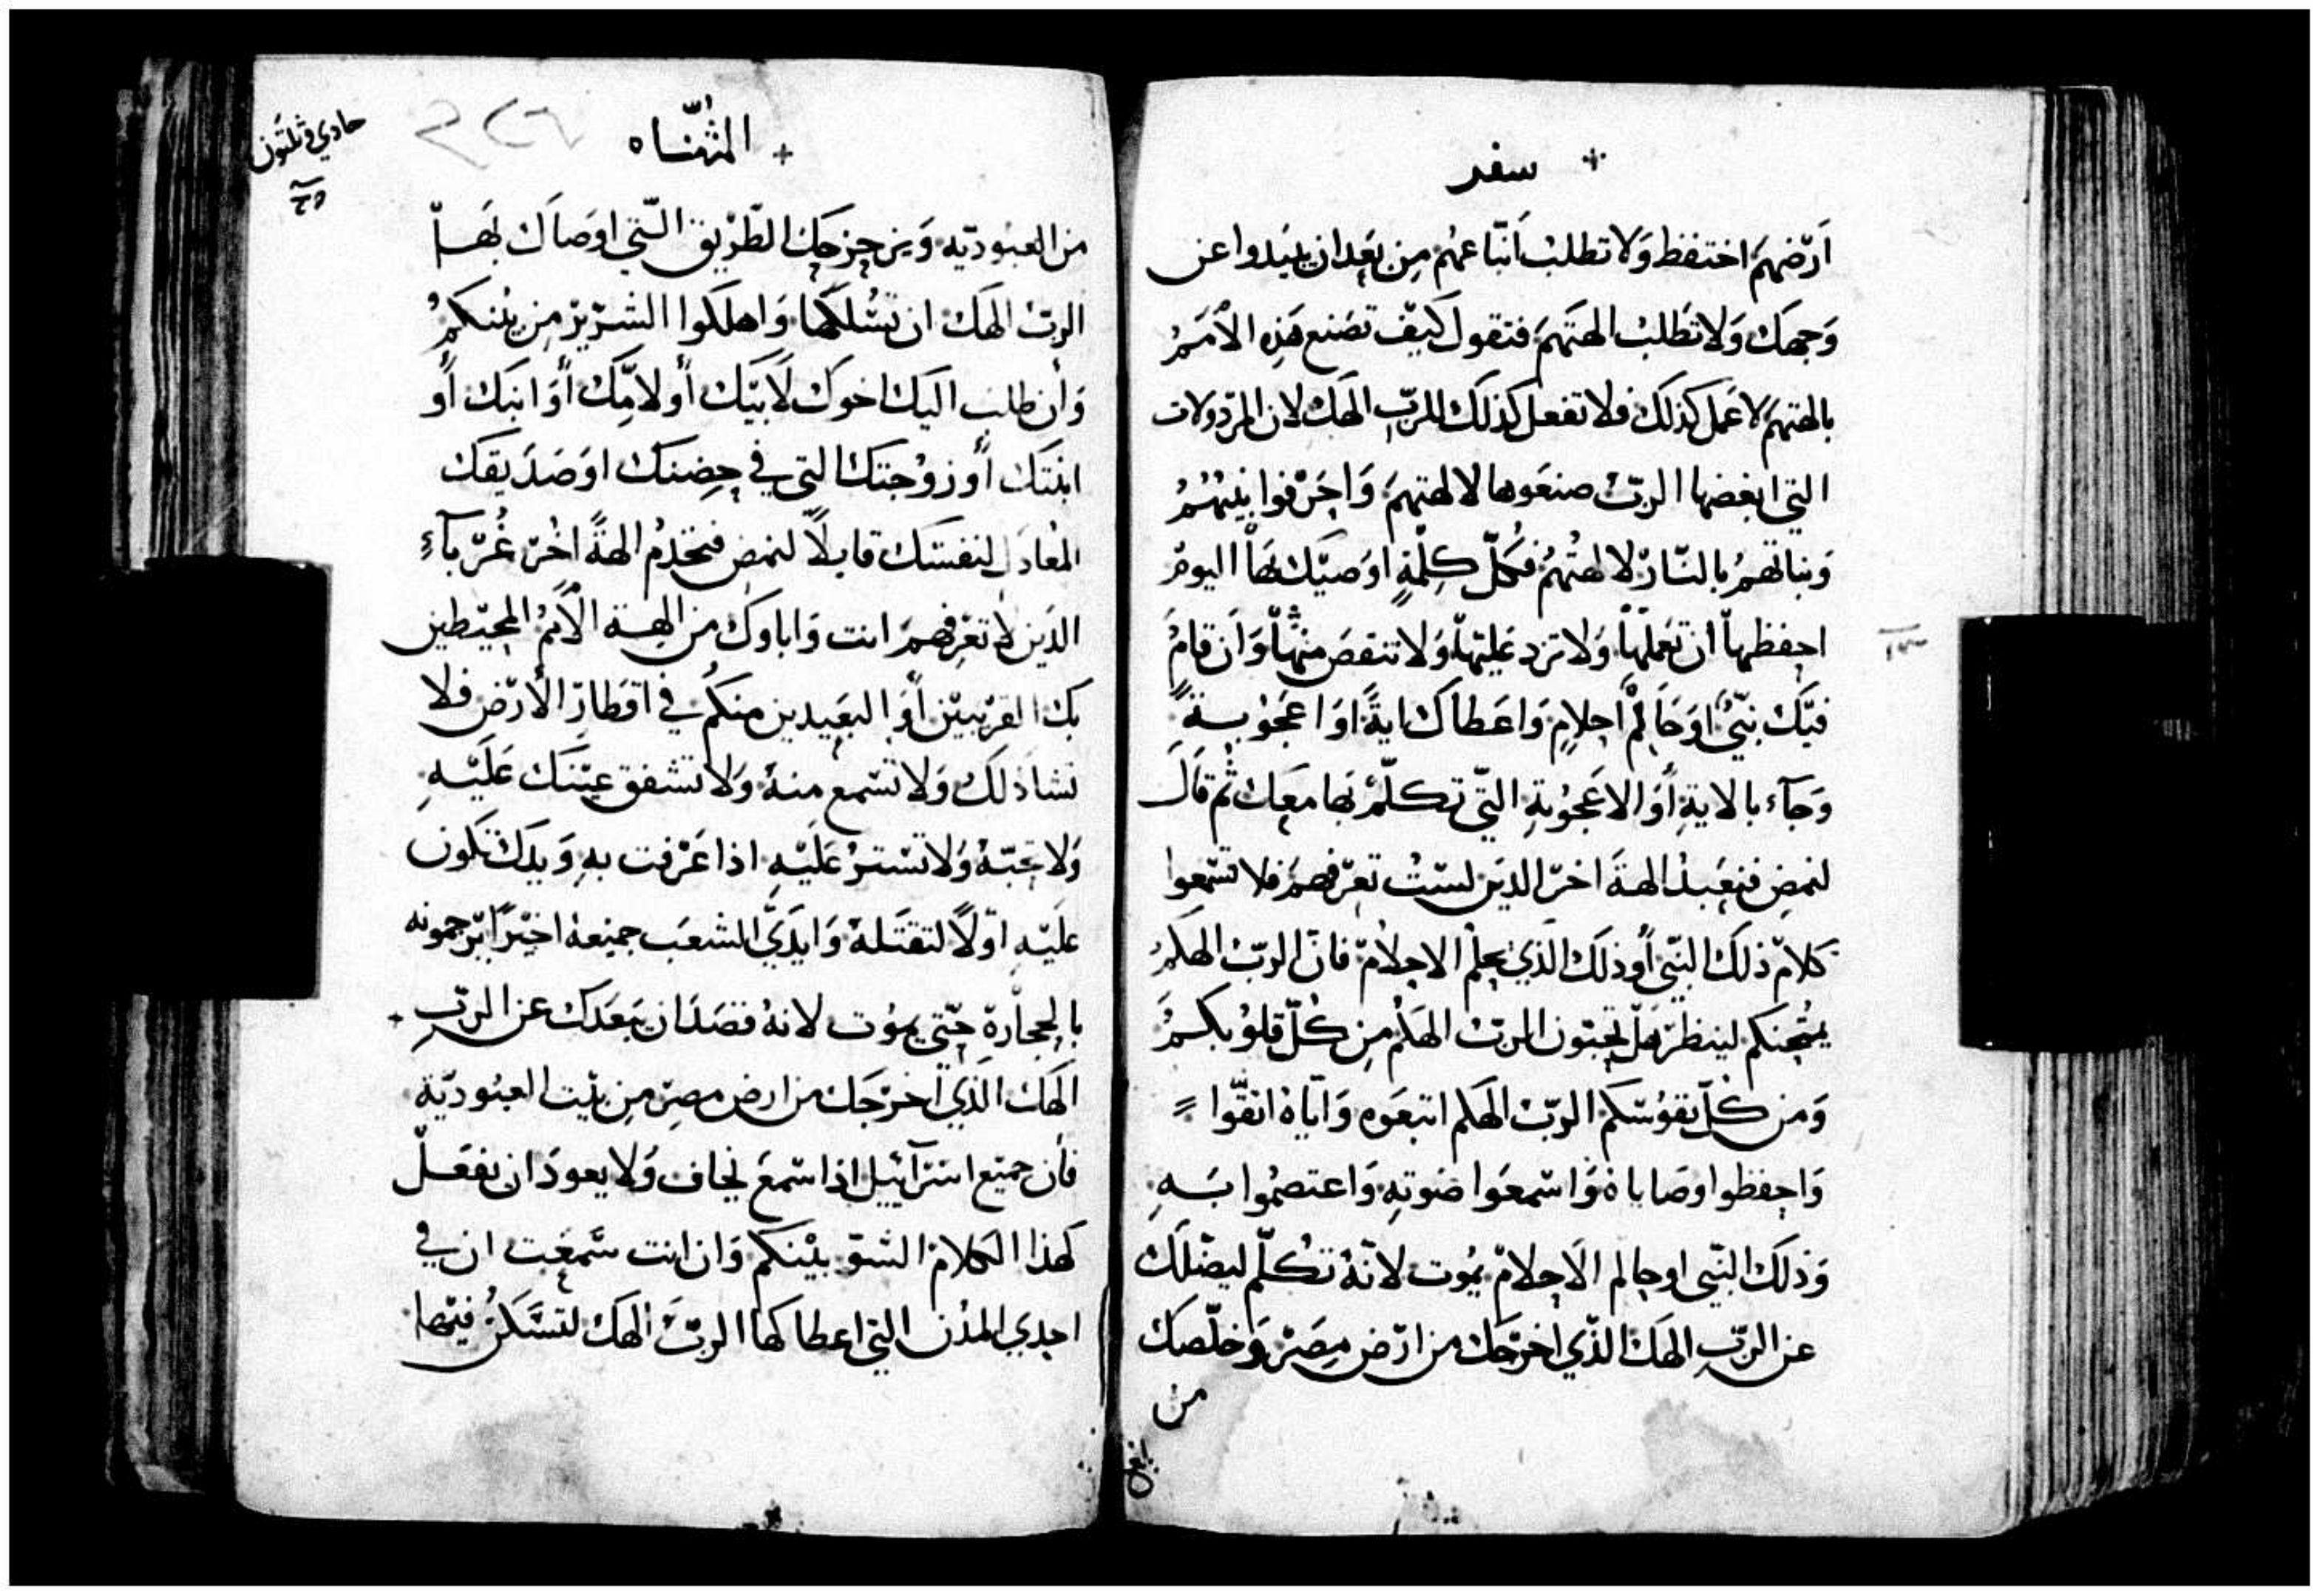 سفر
ارضهم احتفظ ولا تطلب اتباعهم من بعد ان يبيدوا عن
وجهك ولا تطلب الهتهم فتقول كيف تصنع هذه الامم
بالهتهم لاعمل كذلك فلا تفعل كذلك للرب الهك لان المردولات
التي ابغضها الرب صنعوها لالهتهم واحرفوا بنيهم
وبناتهم بالنار لالهتهم فكل كلمة اوصيتك بها اليوم
احفظها ان تعملها ولا تزد عليها ولا تنقص منها وان قام
فيك نبي او حالم احلام واعطاك اية او اعجوبة
وجاء بالاية او الاعجوبة التي تكلم بها معك ثم قال
لنمض فنعبد الهة اخر الدين لست تعرفهم فلا تسمعوا
كلام ذلك النبي او ذلك الذي يحلم الاحلام فان الرب الهكم
يمتحنكم لينظر هل تحبون الرب الهكم من كل قلوبكم
ومن كل نفوسكم الرب الهكم اتبعوه واياه اتقوا
واحفظوا وصاياه واسمعوا صوته واعتصموا به
وذلك النبي او حالم الاحلام يموت لانه تكلم ليضلك
عن الرب الهك الذي اخرجك من ارض مصر وخلصك
من
المثناه
حادي وثلثون
من العبودية ويزحزحك الطريق التي اوصاك بها
الرب الهك ان تسلكها واهلكوا الشرير من بينكم
وان طلب اليك اخوك لابيك أو لامك أو ابنك أو
ابنتك أو زوجتك التي في حضنك او صديقك
المعادل لنفسك قايلاً لنمض فنخدم الهةً اخر غرباء
الذين لا تعرفهم انت واباوك من الهة الأمم المحيطين
بك القريبين أو البعيدين منكم في اقطار الأرض فلا
تشا ذلك ولا تسمع منه ولا تشفق عينك عليه
ولا تحبه ولا تستر عليه اذا عرفت به ويدك تكون
عليه اولاً لتقتله وايدي الشعب جميعه اخيراً يرجمونه
بالحجارة حتى يموت لانه قصد ان يبعدك عن الرب
الهك الذي اخرجك من ارض مصر من بيت العبودية
فأن جميع اسرآييل اذا سمع يخاف ولا يعود ان يفعل
كهذا الكلام السو بينكم وان انت سمعت ان في
احدي المدن التي اعطاكها الرب الهك لتسكن فيها